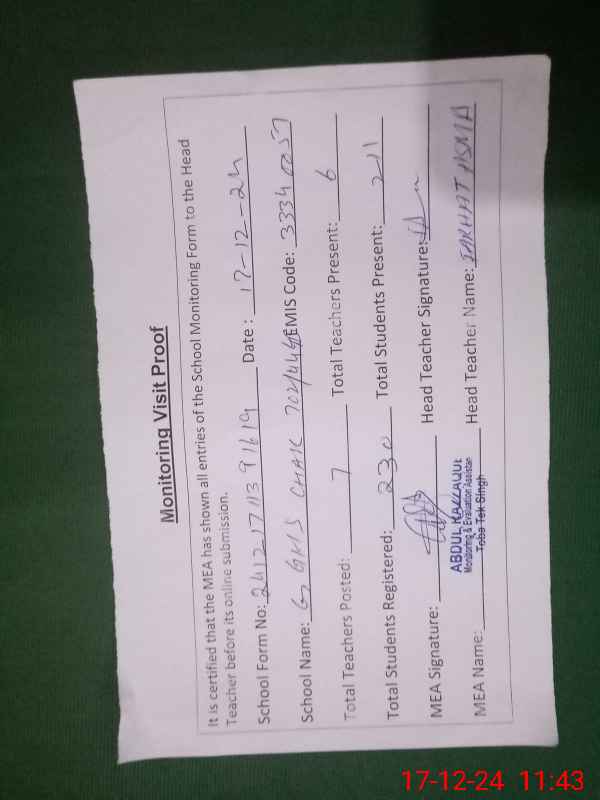 Monitoring Visit Proof
It is certified that the MEA has shown all entries of the School Monitoring Form to the Head
Teacher before its online submission.
School Form No: 24121711391619 Date : 17-12-24
School Name: CHAK EMIS Code: 33340057
Total Teachers Posted: 7 Total Teachers Present: 6
Total Students Registered: 230 Total Students Present: 211
MEA Signature: Head Teacher Signature:
ABDUL RAZZAQUE
Monitoring & Evaluation Assistan
Toba Tek Singh
MEA Name: Head Teacher Name: FARHAT ASMA
17-12-24 11:43